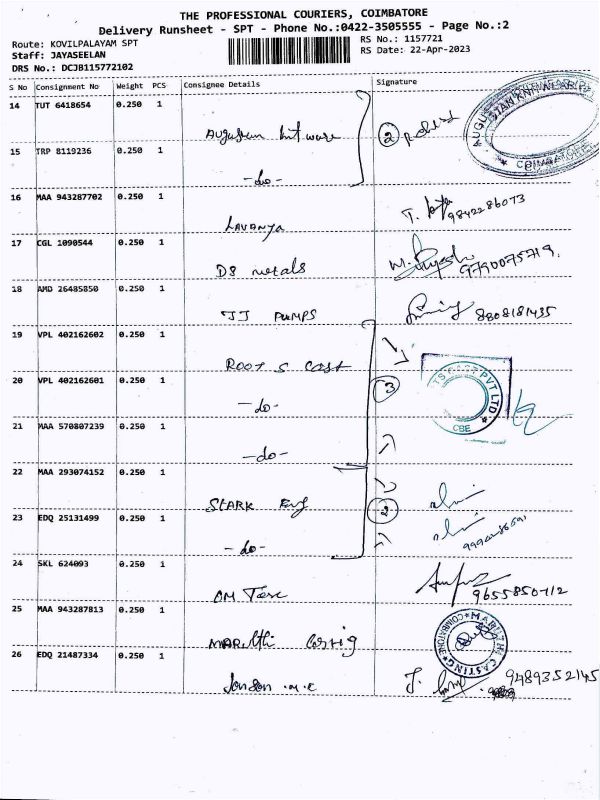 THE PROFESSIONAL COURIERS, COIMBATORE
Delivery Runsheet - SPT - Phone No.:0422-3505555 - Page No.:2
Route: KOVILPALAYAM SPT
RS No.: 1157721
Staff: JAYASEELAN
RS Date: 22-Apr-2023
DRS No.: DCJB115772102
S No Consignment No Weight PCS Consignee Details Signature
14 TUT 6418654 0.250 1
Augustan knit ware
2
15 TRP 8119236 0.250 1
-do-
COIMBATORE
16 MAA 943287702 0.250 1
LAVANYA T. 9842286073
17 CGL 1090544 0.250 1
DS metals 9790075719
18 AMD 26485850 0.250 1
JJ PUMPS 8808181435
19 VPL 402162602 0.250 1
ROOT S Cast
20 VPL 402162601 0.250 1
-do- 3
TS CAST PVT LTD
CBE
21 MAA 570807239 0.250 1
-do-
22 MAA 293074152 0.250 1
STARK Eng 2
23 EDQ 25131499 0.250 1
-do-
24 SKL 624093 0.250 1
OM 9655850112
25 MAA 943287813 0.250 1
MARUthi
COIMBATORE
CASTING
26 EDQ 21487334 0.250 1
Jonson m.c J. 9489352145